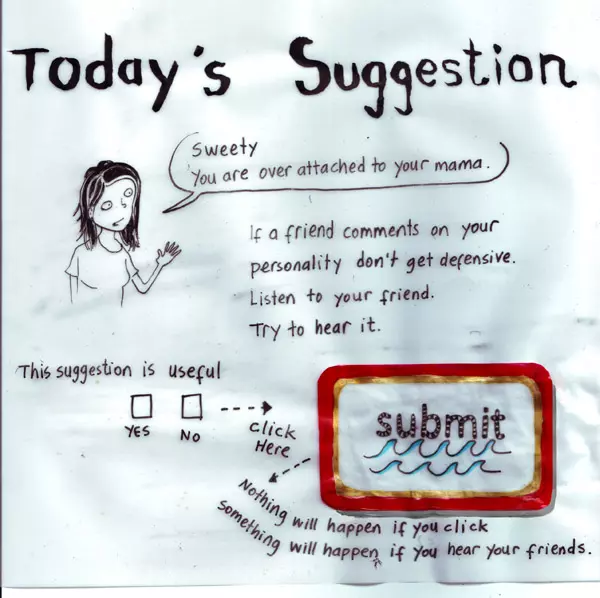 Today's Suggestion
Sweety
You are over attached to your mama.
If a friend comments on your
personality don't get defensive.
Listen to your friend.
Try to hear it.
This suggestion is useful
YES NO
Click
Here
submit
Nothing will happen if you click
something will happen if you hear your friends.